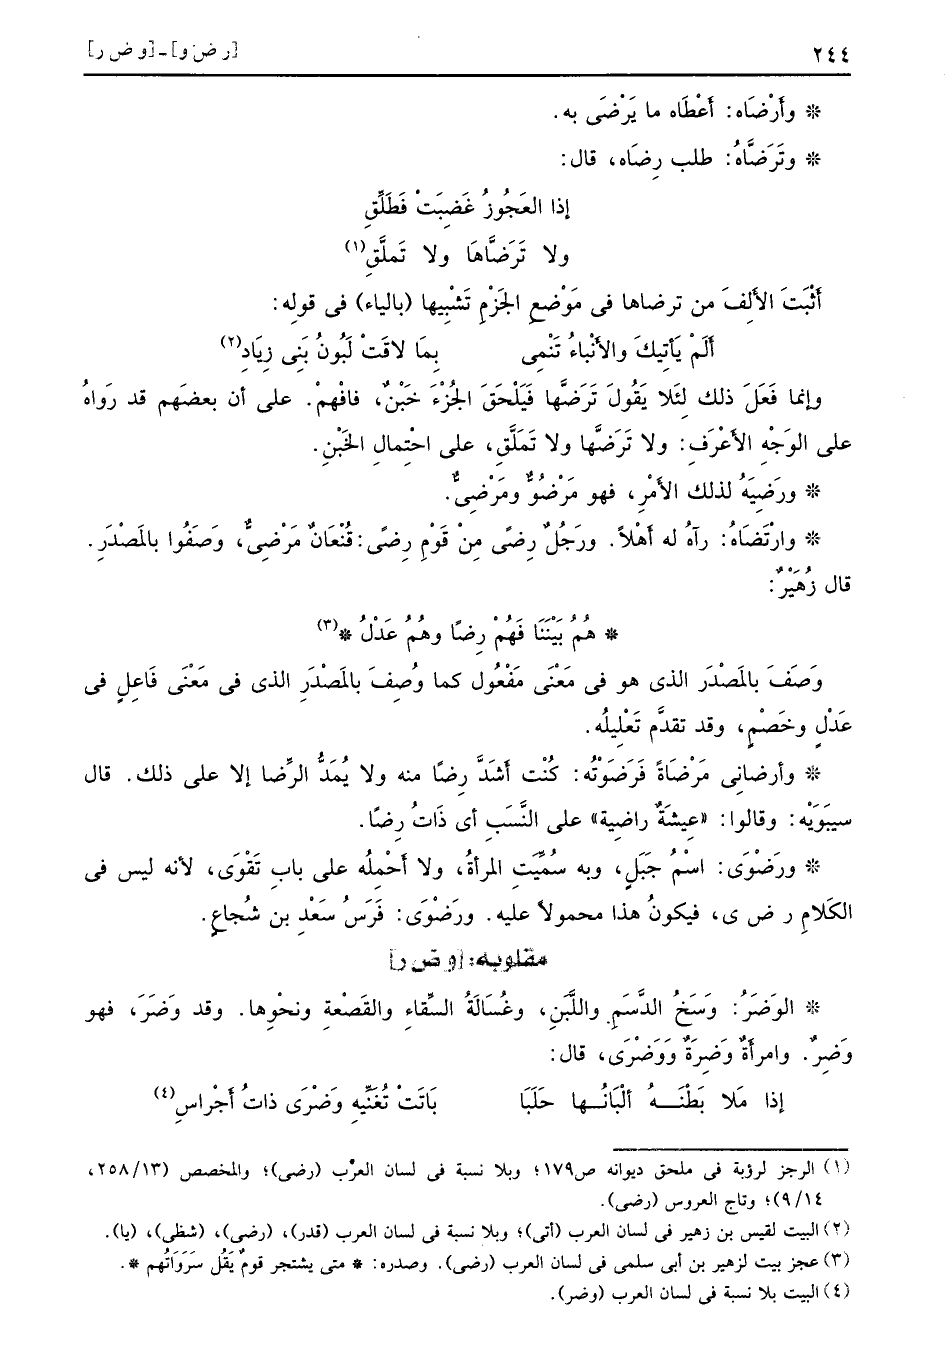 ٢٤٤ [ر ض و] - [و ض ر]
* وأَرْضَاه: أَعْطَاه ما يَرْضَى به.
* وتَرَضَّاهُ: طلب رِضَاه، قال:
إذا العَجُوزُ غَضِبَتْ فَطَلِّقِ
ولا تَرَضَّاهَا ولا تَملَّقِ(١)
أَثْبَتَ الأَلِفَ من ترضاها فى مَوْضعِ الجَزْمِ تَشْبِيها (بالياء) فى قوله:
أَلَمْ يَأتِيكَ والأنْباءُ تَنْمِى بِمَا لاقَتْ لَبُونُ بَنِى زِيَادِ(٢)
وإنما فَعَلَ ذلك لئَلا يَقُولَ تَرَضَّها فَيَلْحَقَ الجُزْءَ خَبْنٌ، فافْهمْ. على أن بعضَهم قد رَواهُ
على الوَجْهِ الأعْرَفِ: ولا تَرَضَّها ولا تَمَلَّقِ، على احْتِمالِ الخَبْنِ.
* ورَضِيَهُ لذلك الأمْرِ، فهو مَرْضُوٌّ ومَرْضِىٌّ.
* وارْتَضَاهُ: رآهُ له أهْلاً. ورَجُلٌ رِضًى مِنْ قَوْمٍ رِضًى: قُنْعَانٌ مَرْضِىٌّ، وَصَفُوا بالمَصْدَرِ.
قال زُهَيْرٌ:
* هُمُ بَيْنَنَا فَهُمْ رِضًا وهُمُ عَدْلُ *(٣)
وَصَفَ بالمَصْدَر الذى هو فى مَعْنَى مَفْعُول كما وُصِفَ بالمَصْدَرِ الذى فى مَعْنَى فَاعلٍ فى
عَدْلٍ وخَصْمٍ، وقد تقدَّم تَعْلِيلُه.
* وأرضانى مَرْضَاةً فَرَضَوْتُه: كُنْت أشَدَّ رِضًا منه ولا يُمَدُّ الرِّضا إلا على ذلك. قال
سيبَوَيْه: وقالوا: «عِيشَةٌ راضِية» على النَّسَبِ أى ذَاتُ رِضًا.
* ورَضْوَى: اسْمُ جَبَلٍ، وبه سُمِّيَتِ المرأةُ، ولا أَحْمِلُه على بابِ تَقْوَى، لأنه ليس فى
الكَلامِ ر ض ى، فيكونُ هذا محمولاً عليه. ورَضْوَى: فَرَسُ سَعْدِ بن شُجاعٍ.
مقلوبه: [و ض ر]
* الوَضَرُ: وَسَخُ الدَّسَمِ واللَّبَنِ، وغُسَالَةُ السِّقاءِ والقَصْعةِ ونحْوِها. وقد وَضَرَ، فهو
وَضِرٌ. وامرأةٌ وَضِرَةٌ ووَضْرَى، قال:
إذا مَلا بَطْنَـــهُ ألْبَانُـــها حَلَبَا بَاتَتْ تُغَنِّيهِ وَضْرَى ذاتُ أجْراسِ(٤)
(١) الرجز لرؤبة فى ملحق ديوانه ص١٧٩؛ وبلا نسبة فى لسان العرْب (رضى)؛ والمخصص (٢٥٨/١٣،
٩/١٤)؛ وتاج العروس (رضى).
(٢) البيت لقيس بن زهير فى لسان العرب (أتى)؛ وبلا نسبة فى لسان العرب (قدر)، (رضى)، (شظى)، (يا).
(٣) عجز بيت لزهير بن أبى سلمى فى لسان العرب (رضى). وصدره: * متى يشتجر قومٌ يَقُل سَرَوَاتُهم *.
(٤) البيت بلا نسبة فى لسان العرب (وضر).